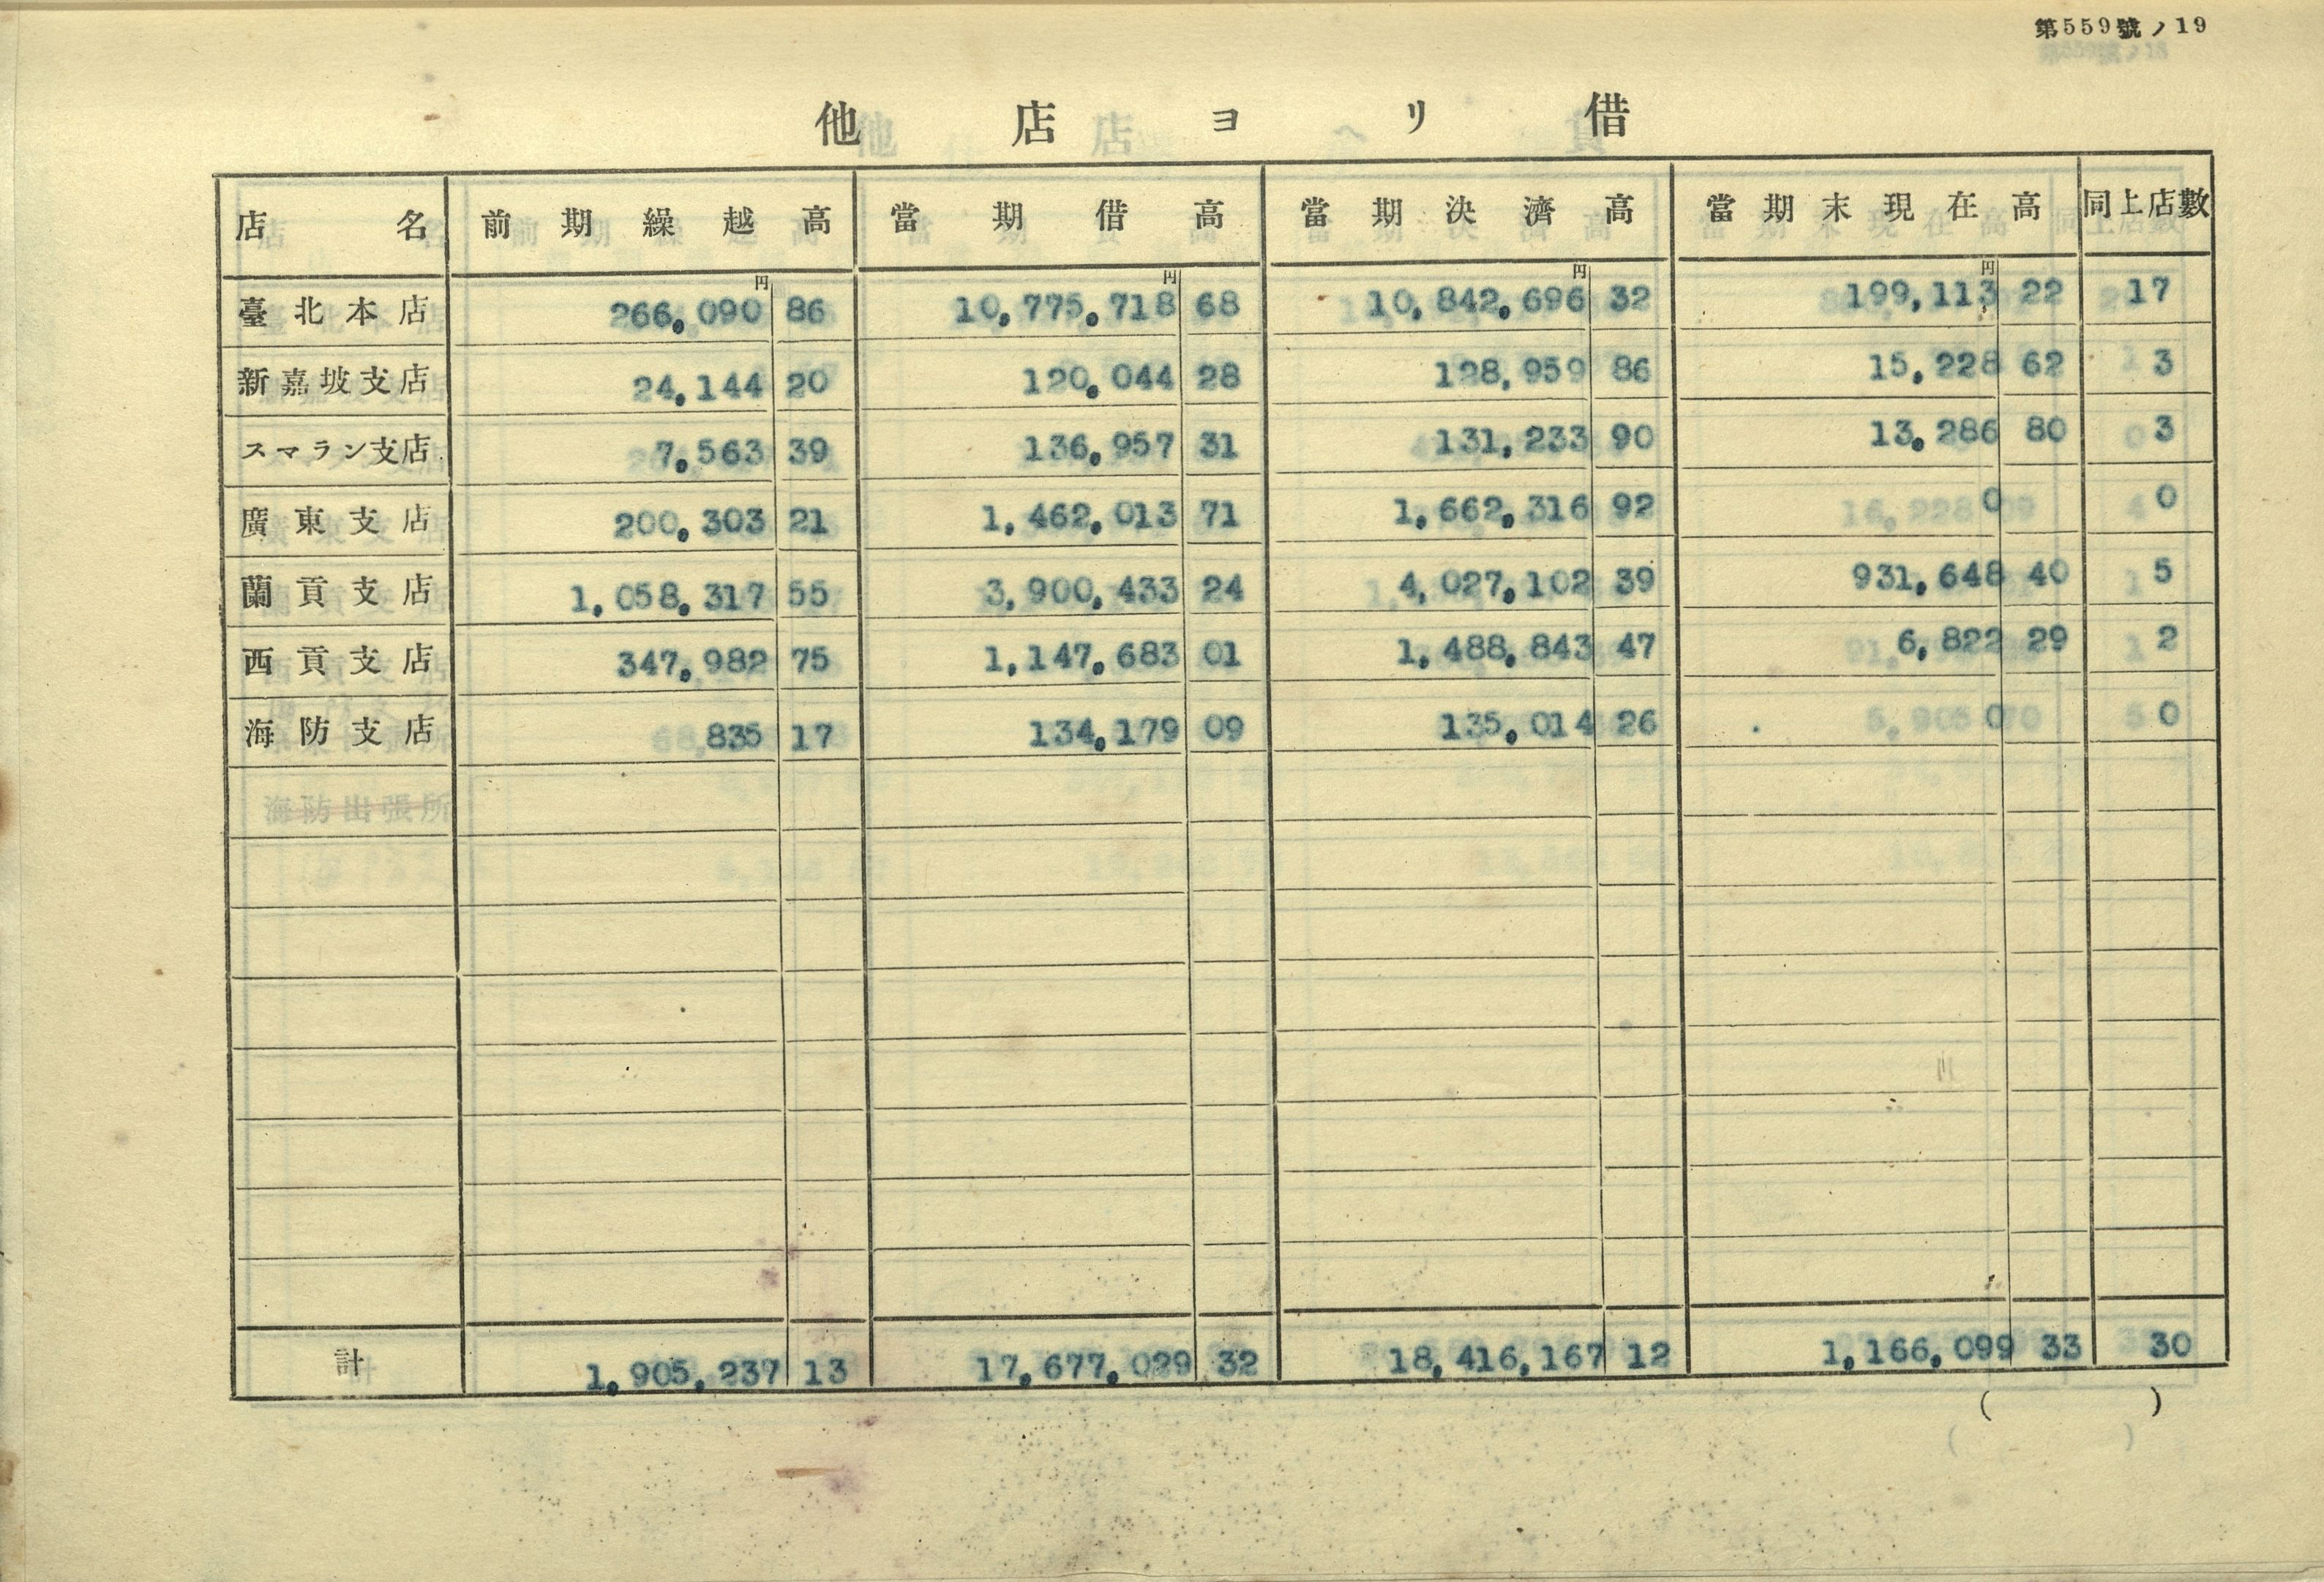 第559號ノ19
他店ヨリ借
店名 前期繰越高 當期借高 當期決濟高 當期末現在高 同上店數
円 円 円 円
臺北本店 266,090 86 10,775,718 68 10,842,696 32 199,113 22 17
新嘉坡支店 24,144 20 120,044 28 128,959 86 15,228 62 3
スマラン支店 7,563 39 136,957 31 131,233 90 13,286 80 3
廣東支店 200,303 21 1,462,013 71 1,662,316 92 0 0
蘭貢支店 1,058,317 55 3,900,433 24 4,027,102 39 931,648 40 5
西貢支店 347,982 75 1,147,683 01 1,488,843 47 6,822 29 2
海防支店 835 17 134,179 09 135,014 26 0 0
海防出張所
計 1,905,237 13 17,677,029 32 18,416,167 12 1,166,099 33 30
( )